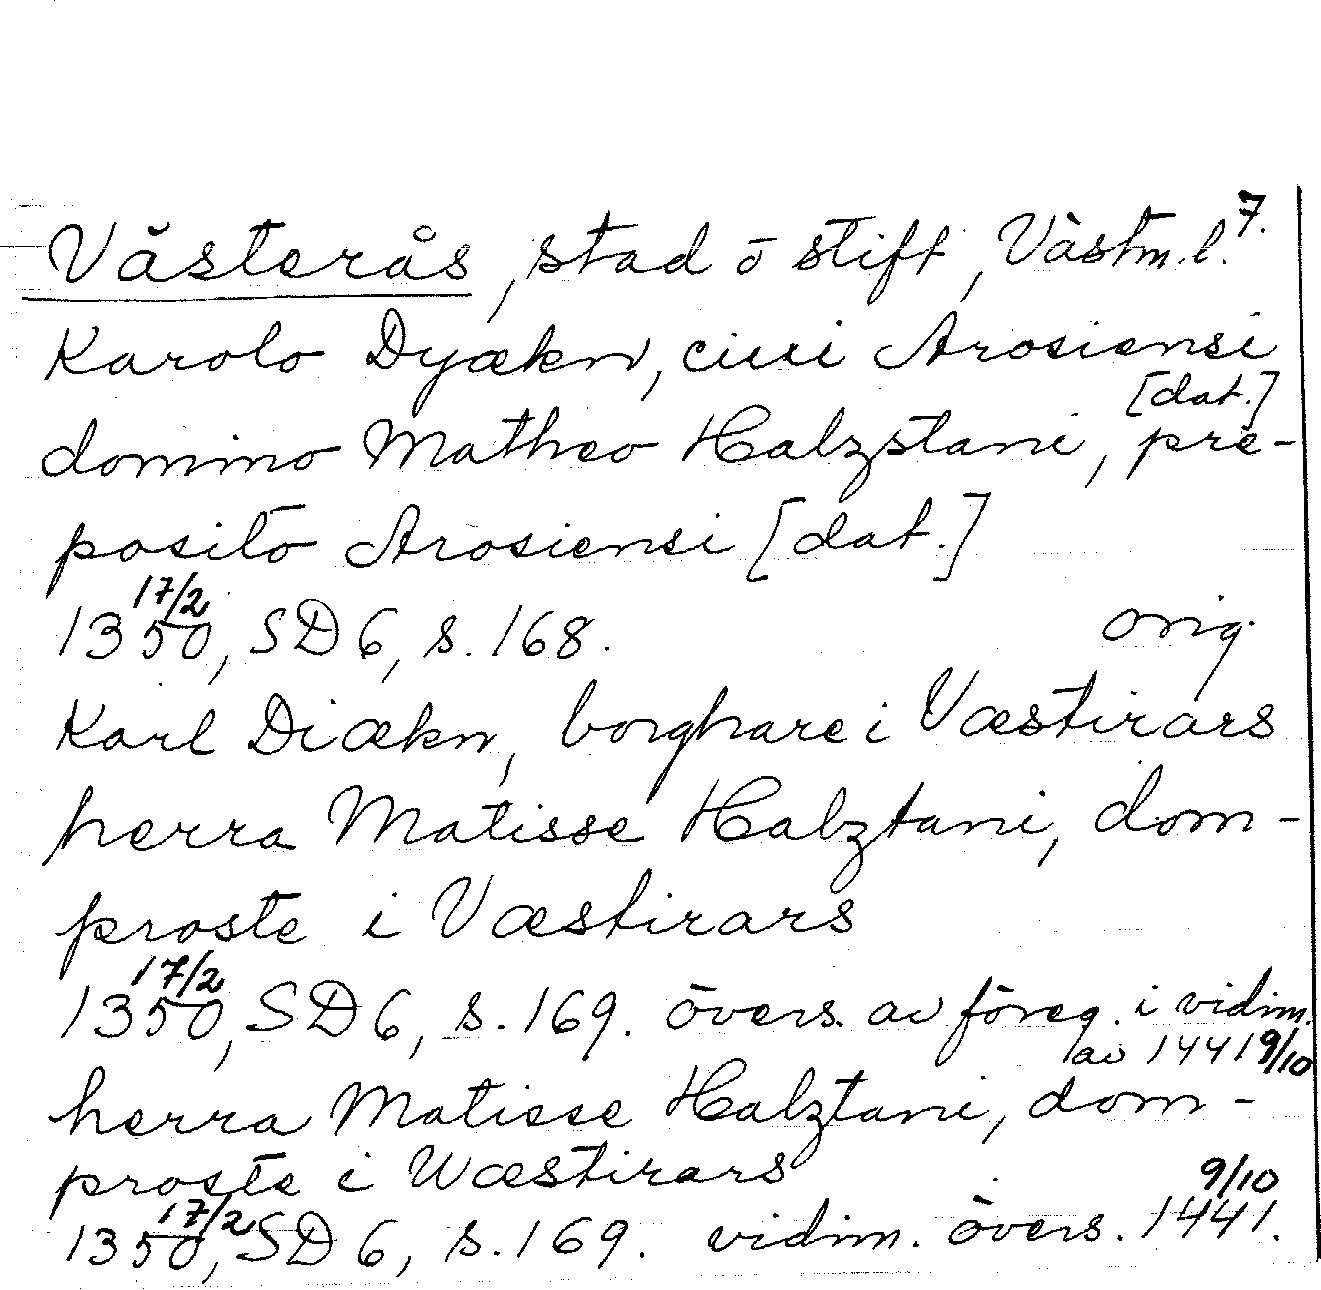 Västerås, stad ō stift, Västm.l. 7.
Karolo Dyækn, ciui Arosiensi [dat.]
domino Matheo Halzstani, pre-
posito Arosiensi [dat.]
1350 17/2, SD 6, s. 168. orig.
Karl Diækn, borghare i Væstirars
herra Matisse Halztani, dom-
proste i Væstirars
1350 17/2, SD 6, s. 169. övers. av föreg. i vidim.
av 1441 9/10
herra Matisse Halztani, dom-
proste i Wæstirars
1350 17/2, SD 6, s. 169. vidim. övers. 1441. 9/10